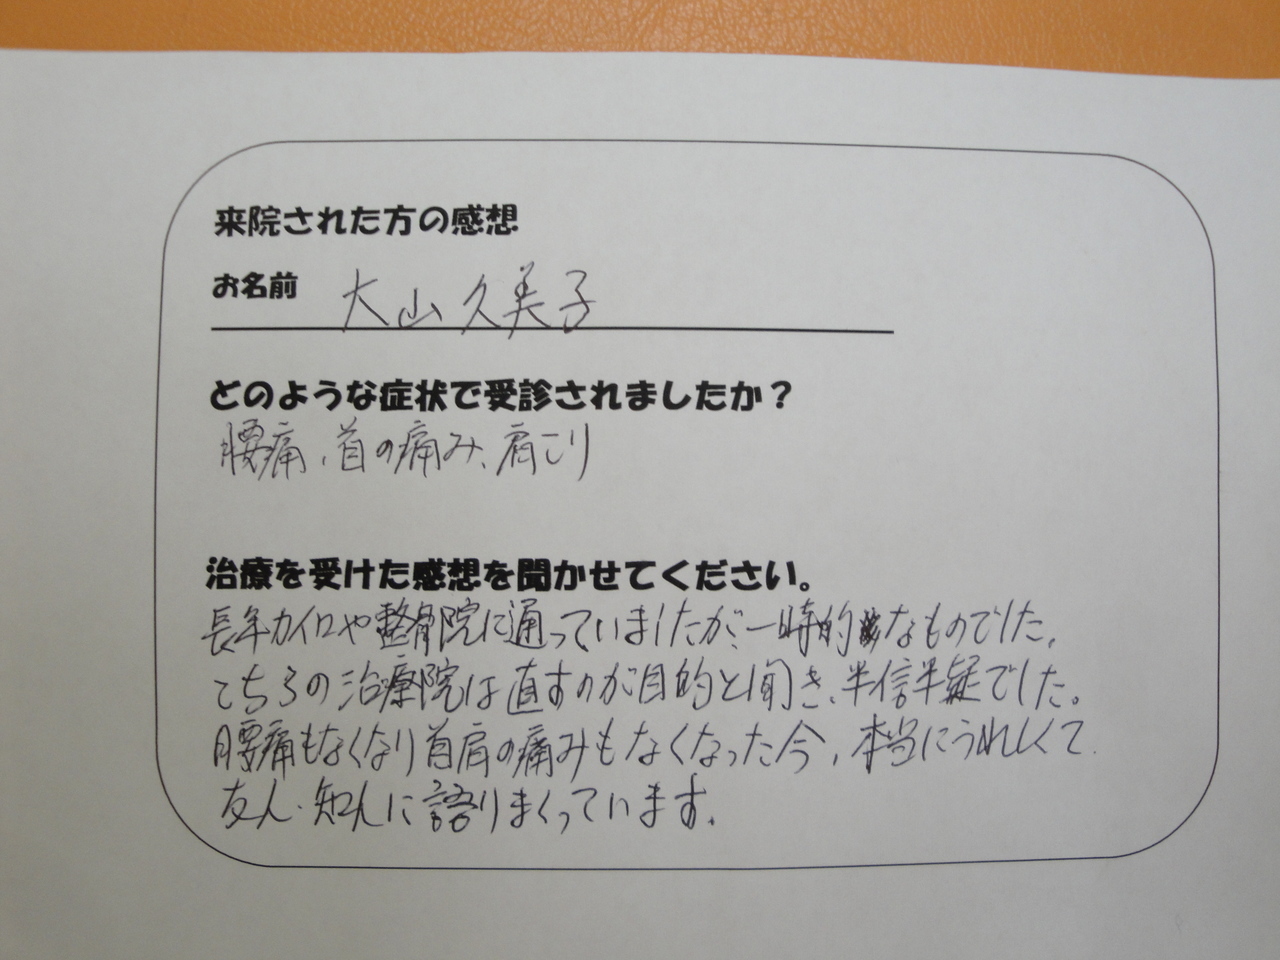 来院された方の感想
お名前 大山久美子
どのような症状で受診されましたか？
腰痛、首の痛み、肩こり
治療を受けた感想を聞かせてください。
長年カイロや整骨院に通っていましたが、一時的なものでした。
こちらの治療院は直すのが目的と聞き、半信半疑でした。
腰痛もなくなり首肩の痛みもなくなった今、本当にうれしくて
友人・知人に語りまくっています。